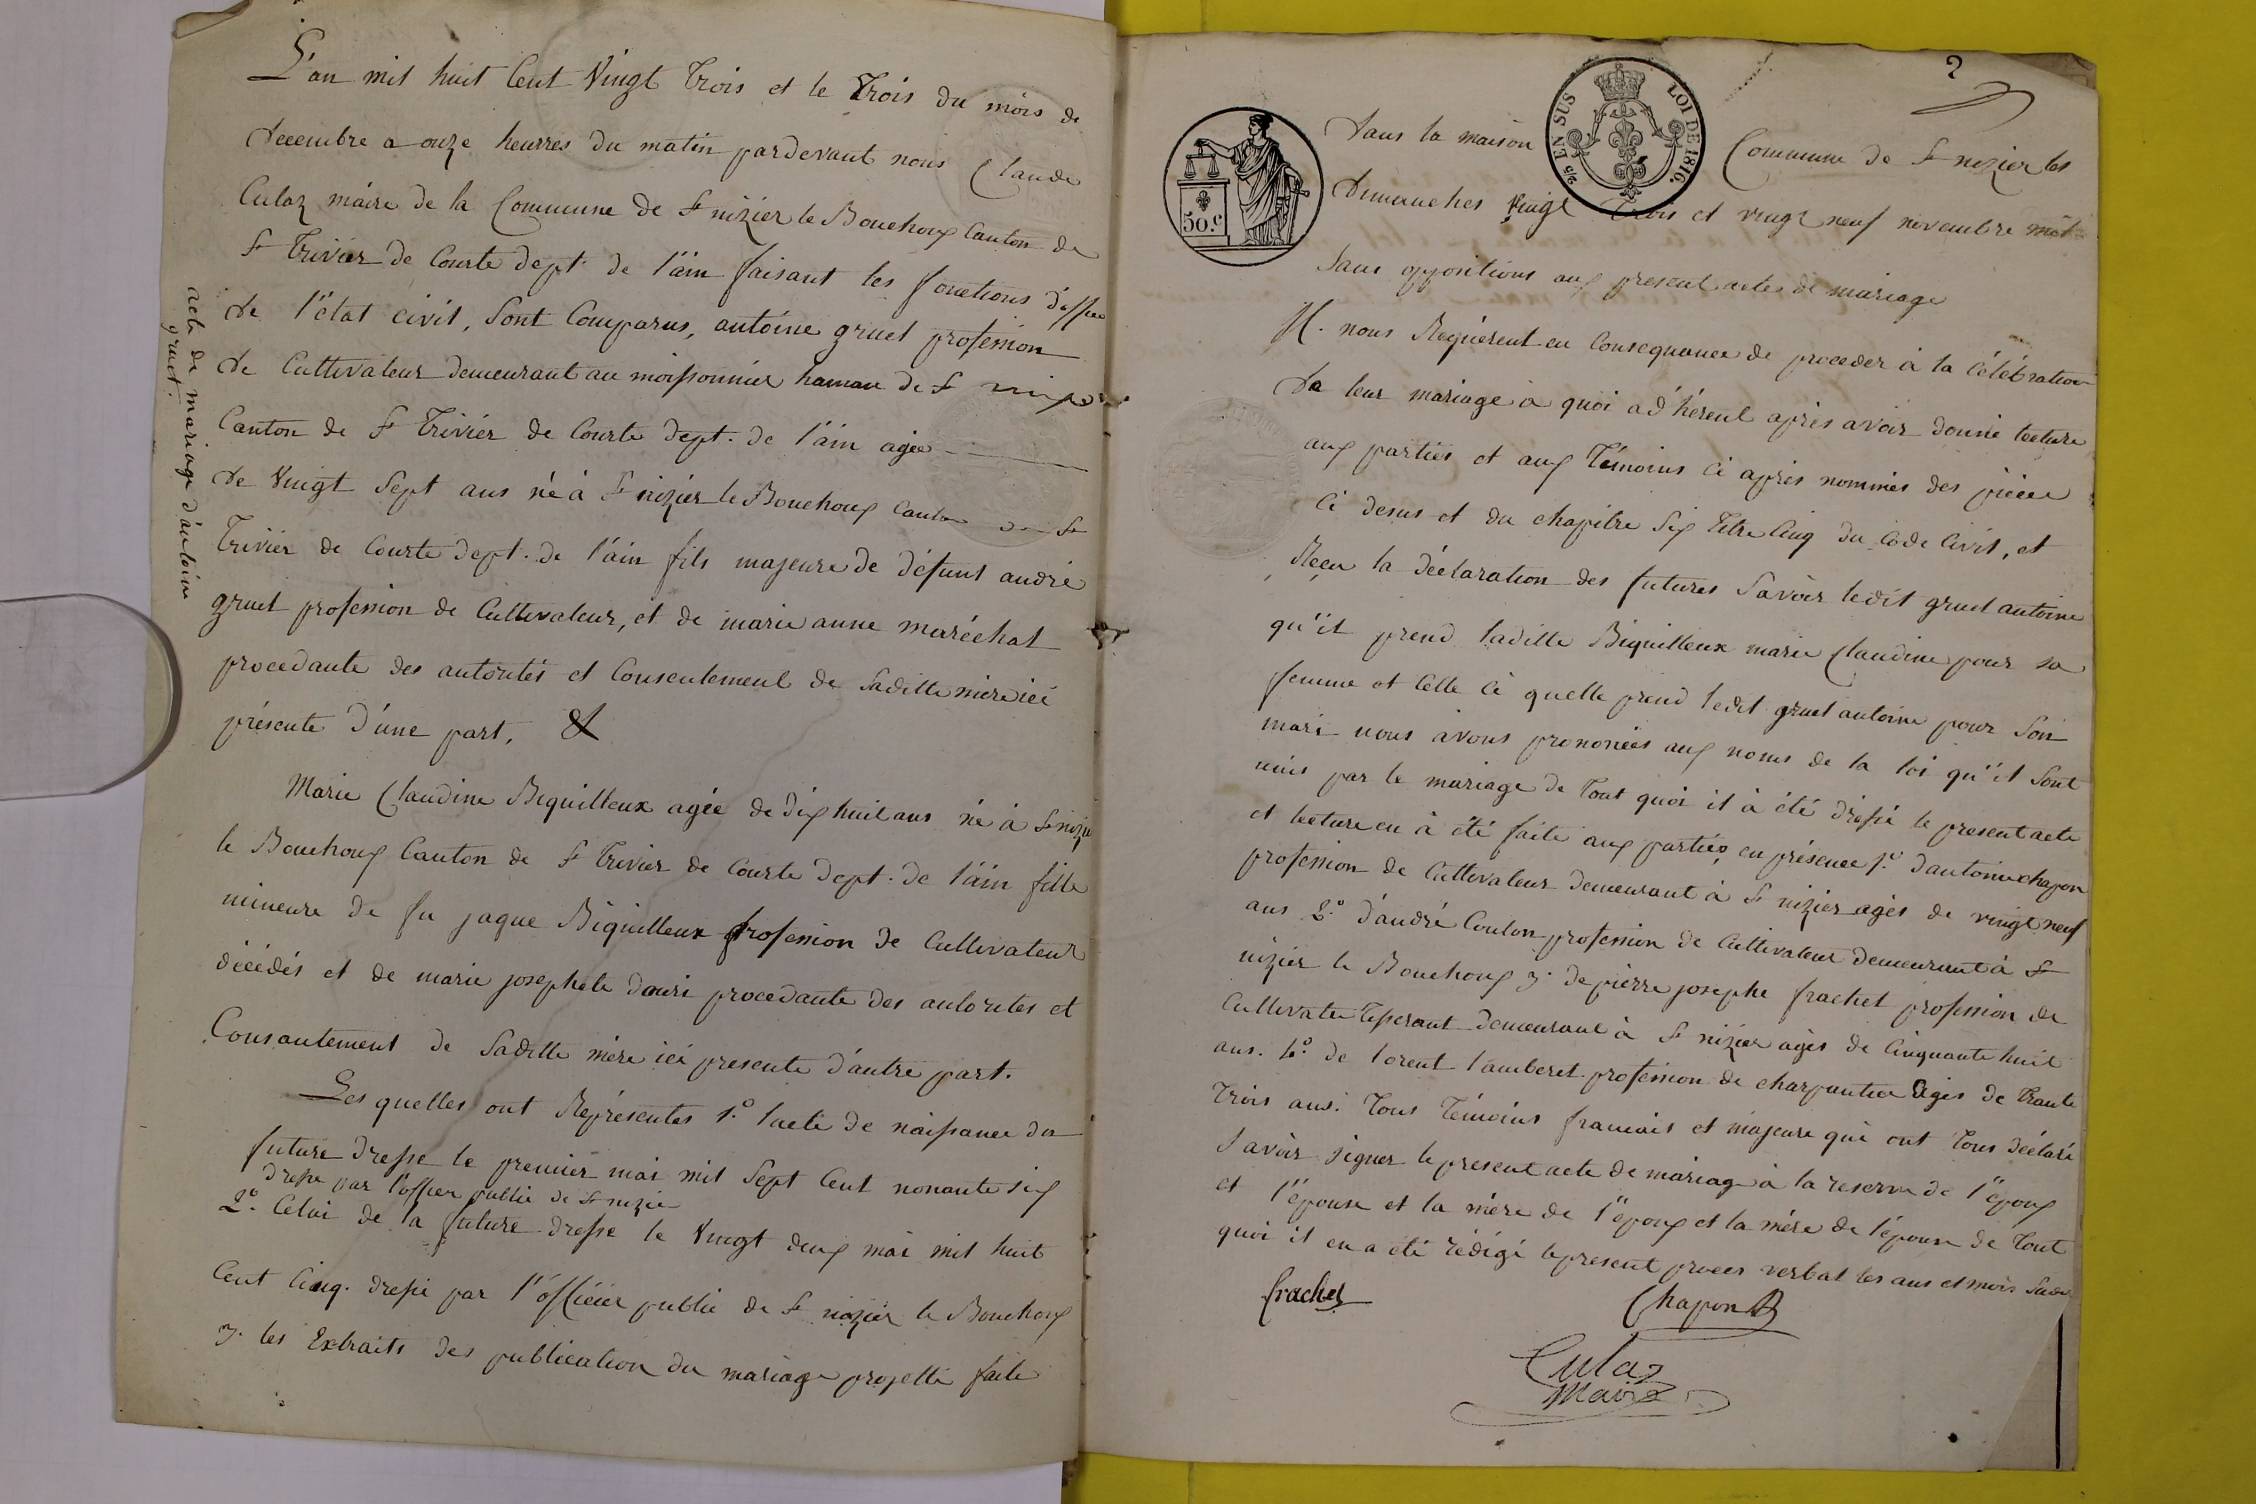 L'an mil huit Cent Vingt trois et le trois du mois de
decembre a onze heurres du matin pardevant nous Claude
Culaz maire de la Commune de St nizier le Bouchoux Canton de
St trivier de Courte dept. de l'ain faisant les fonctions d'
de l'état civil, sont Comparus, antoine gruel profession
de Cultivateur demeurant au moissonnier hamau de St nizier
Canton de St Trivier de Courte dept. de l'ain agée
de Vingt Sept ans né à St nizier le Bouchoux Canton de St
trivier de Courte dept. de l'ain fils majeure de défunt andré
gruel profession de Cultivateur, et de marie anne maréchal
procedante des autorités et Consentement de Saditte mère ici
présente d'une part, &
Marie Claudine Biquilleux agée de dix huit ans né à St nizier
le Bouchoux Canton de St Trivier de Courte dept. de l'ain fille
mineure de fu jaque Biquilleux profession de Cultivateur
décédés et de marie josephete douri procedante des autorites et
Consantement de Saditte mère ici presente d'autre part.
Les quelles ont Représentés 1.° l'acte de naissance du
future dresse le premier mai mil Sept Cent nonante six
dresse par l'officer public de St nizie
2.° Celui de la future dresse le Vingt deux mai mil huit
Cent Cinq. dressé par l'officier public de St nizier le Bouchoux
3.° les Extraits des publication du mariage projetté faite
acte de mariage d'antoine
gruel.
2
25 EN SUS
LOI DE 1816.
50.c
dans la maison Commune de St nizier les
dimanches vingt trois et vingt neuf novembre
Sans oppositions aux present actes de mariage
Il. nous Requierent en Consequance de proceder à la célébration
da leur mariage a quoi ad'hérent après avoir donné lecture
aux parties et aux témoins Ci après nommés des pièces
Ci desus et du chapitre Six titre Cinq du Code Civil, et
Reçu la déclaration des futures Savoir ledit gruel antoine
qu'il prend laditte Biquilleux marie Claudine pour sa
femme et Celle Ci quelle prend ledit gruel antoine pour Son
mari nous avons prononcés aux noms de la loi qu'il Sont
unis par le mariage de tout quoi il à été dressé le present acte
et lecture en à été faite aux parties en présence 1.° d'antoine chapon
profession de Cultivateur demeurant à St nizier agés de vingt neuf
ans 2.° d'andré Coulon profession de Cultivateur demeurant à St
nizier le Bouchoux 3.° de pierre josephe frachet profession de
Cultivateu tisserant demeurant à St nizier agés de Cinquante huit
ans. 4.° de lorent lamberet profession de charpantier agés de trante
trois ans. tous témoins francais et majeure qui ont tous déclaré
Savoir signer le present acte de mariage à la reserve de l'époux
et l'épouse et la mére de l'époux et la mére de l'épouse de tout
quoi il en a été rédigé le present proces verbal les ans et mois Sus
frachet
Chapon
Culaz
Maire